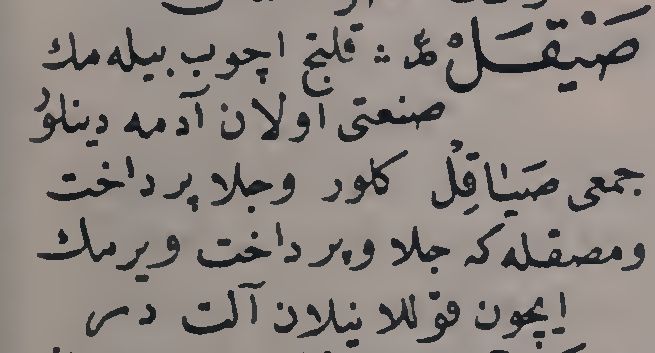 صَيْقَلْ ع : قلنج اچوب بيله مك
صنعتى اولان آدمه دينلور
جمعى صَيَاقِلْ كلور وجلا پرداخت
ومصقله كه جلا وپرداخت ويرمك
ايچون قوللانيلان آلت در